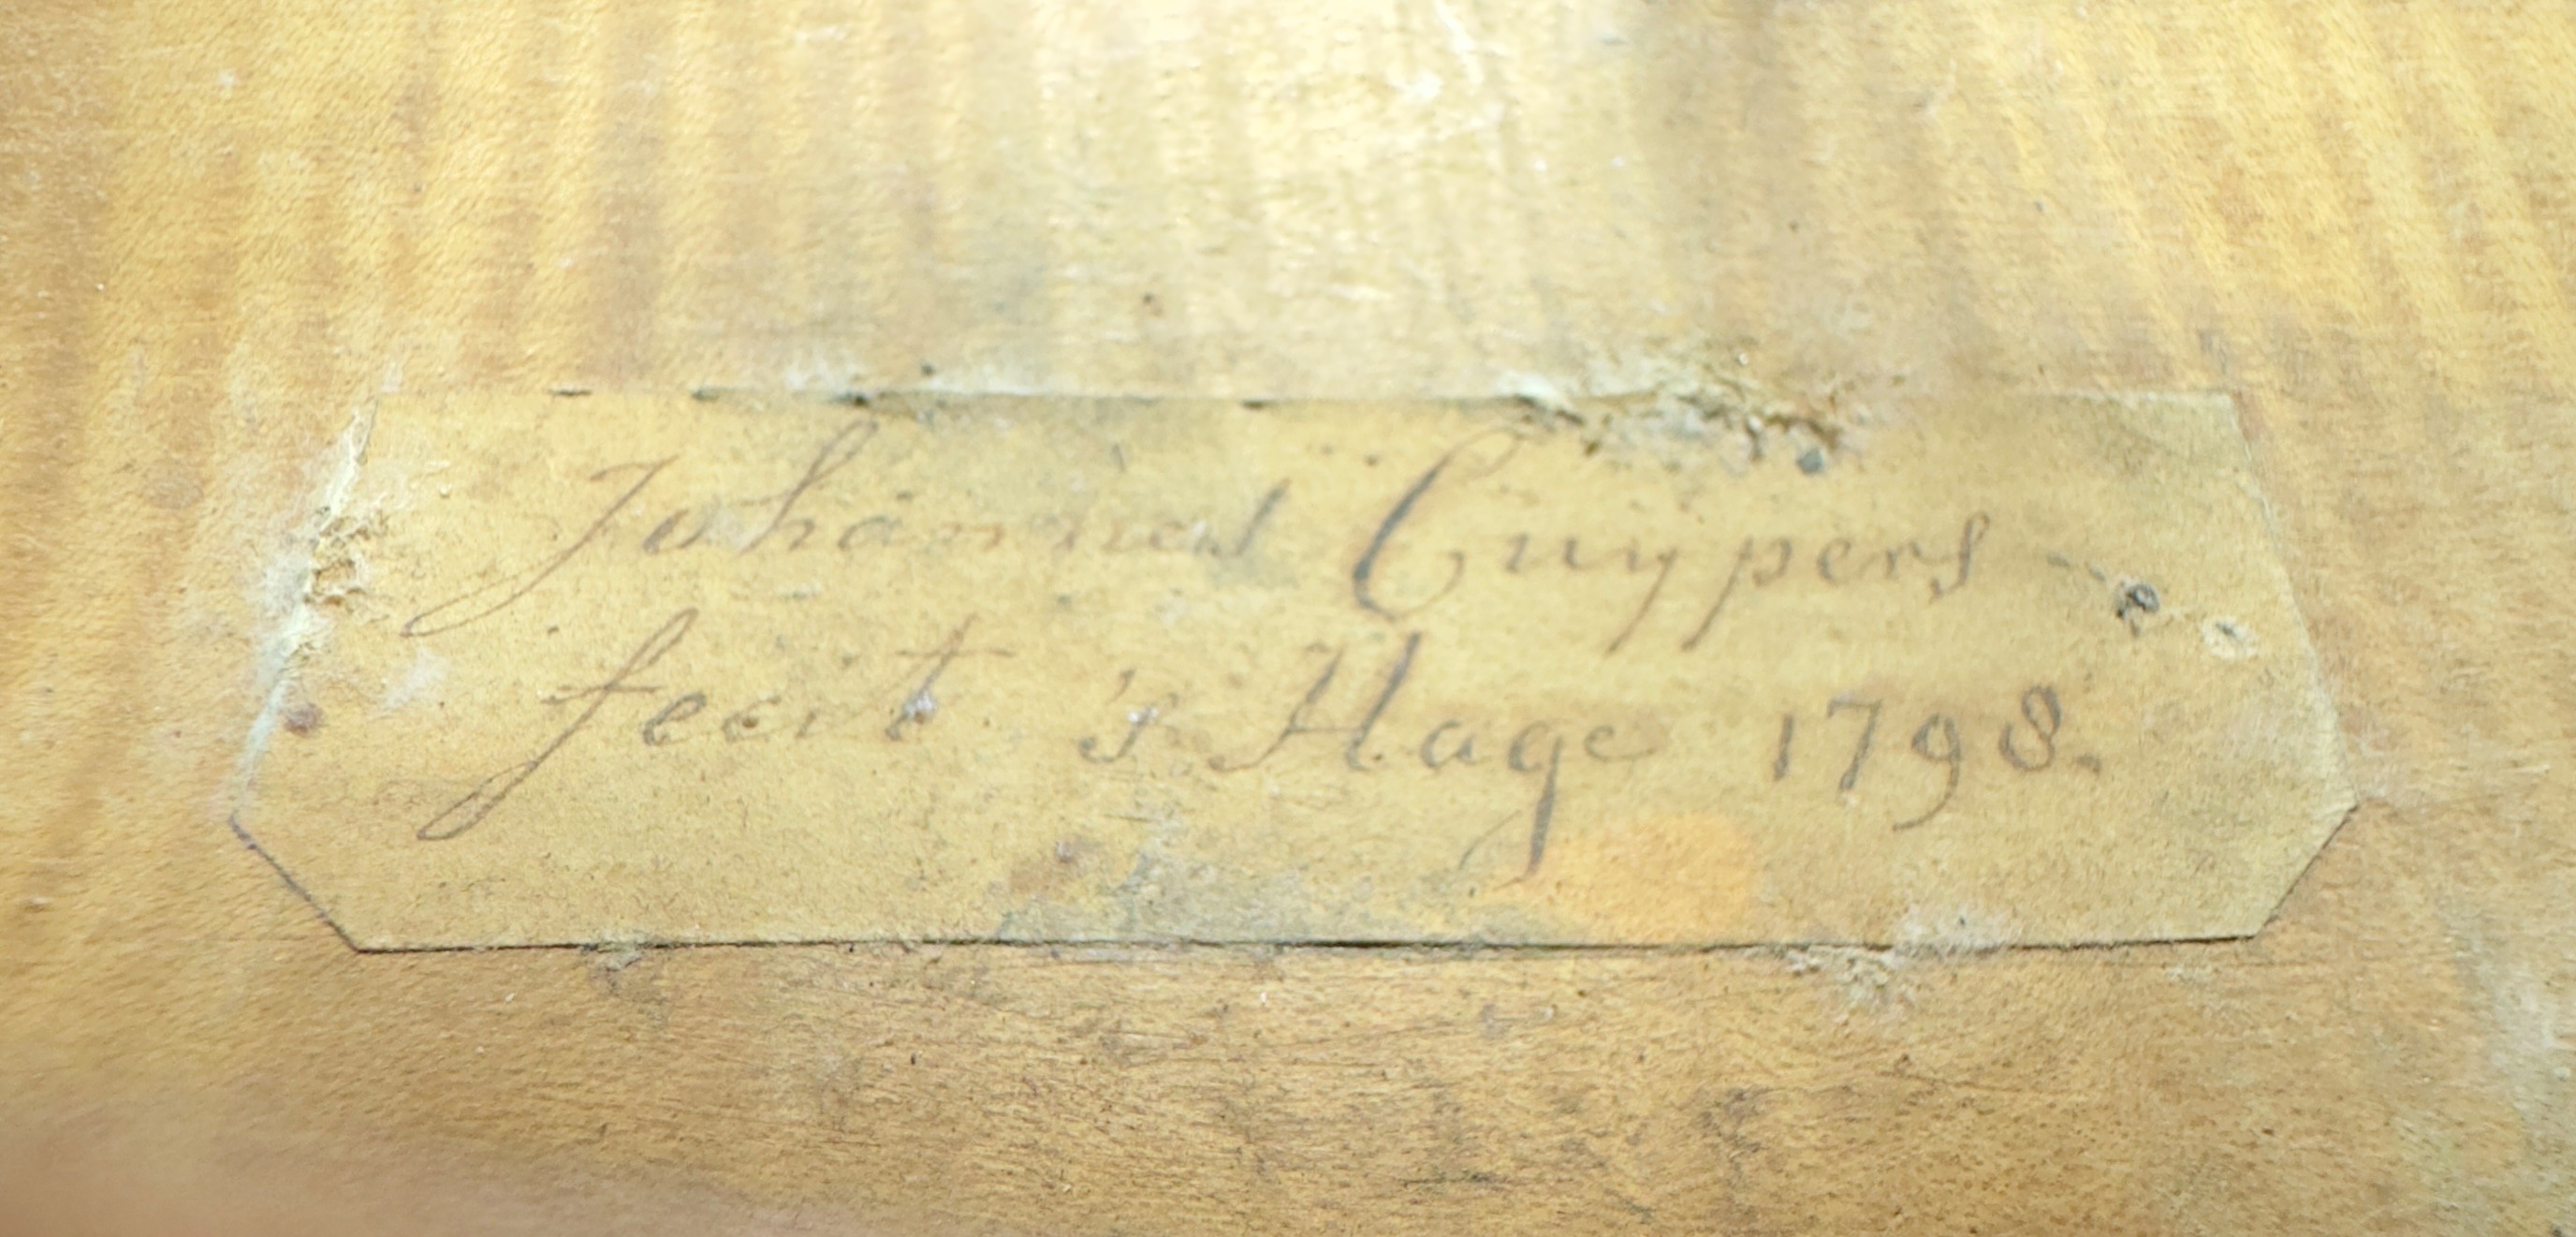 Johannes Cuÿpers
fecit 's Hage 1798.